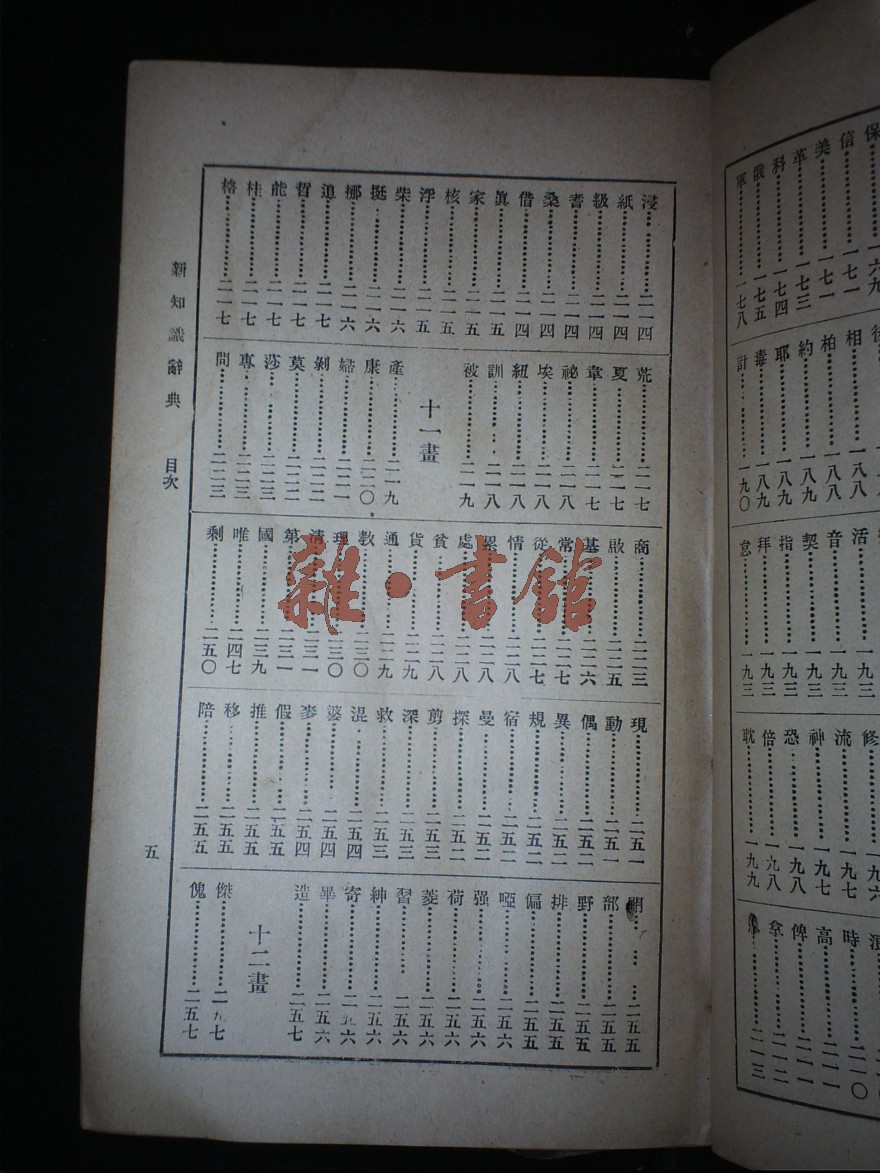 保……一六九
信……一七一
美……一七一
革……一七三
科……一七四
俄……一七五
軍……一七八
相……一八八
柏……一八八
約……一八九
耶……一八九
毒……一八九
計……一九〇
活……一九三
音……一九三
契……一九三
指……一九三
拜……一九三
怠……一九三
修……九六
流……一九七
神……一九七
恐……一九八
倍……一九八
耽……一九九
時……二一〇
高……二一一
俾……二一一
拿……二一二
……二一三
浸……二一四
紙……二一四
級……二一四
耆……二一四
桑……二一四
借……二一四
眞……二一五
家……二一五
核……二一五
浮……二一五
柴……二一六
挺……二一六
挪……二一六
追……二一七
哲……二一七
能……二一七
桂……二一七
格……二一七
荒……二一七
夏……二一七
韋……二一七
祕……二一八
埃……二一八
紐……二一八
訓……二一八
被……二一九
十一畫
產……二一九
康……二二〇
婦……二二一
剝……二二二
莫……二二二
莎……二二二
專……二二三
問……二二三
商……二二三
啟……二二五
基……二二六
常……二二七
從……二二七
情……二二八
累……二二八
處……二二八
貧……二二八
貨……二二九
通……二二九
教……二三〇
理……二三〇
清……二三一
第……二三一
國……二三九
唯……二四七
剩……二五〇
現……二五一
動……二五一
偶……二五二
異……二五二
規……二五二
宿……二五二
曼……二五二
探……二五二
剪……二五三
深……二五三
救……二五三
混……二五四
婆……二五四
麥……二五四
假……二五五
推……二五五
移……二五五
陪……二五五
……二五五
部……二五五
野……二五五
排……二五五
偏……二五五
啞……二五六
强……二五六
荷……二五六
菱……二五六
習……二五六
紳……二五六
寄……二五六
畢……二五六
造……二五七
十二畫
傑……二五七
傀……二五七
新知識辭典 目次
五
雜·書館